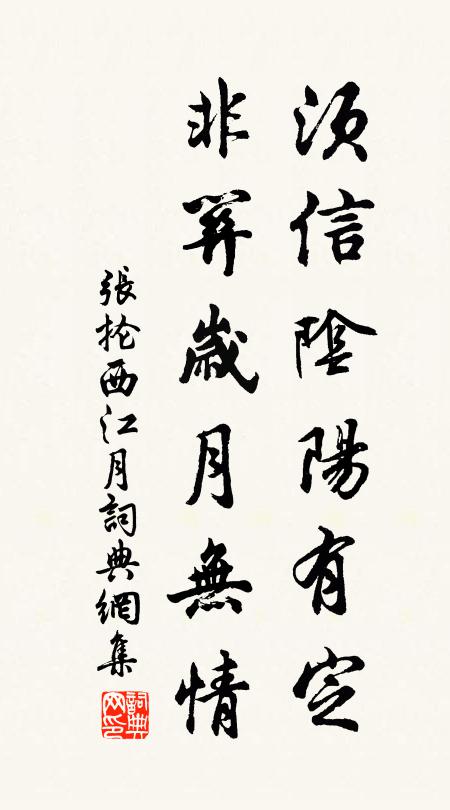 須信陰陽有定
非關歲月無情
張掄西江月詞典網集
詞典网印